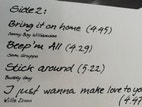 Side 2:
Bring it on home (4:45)
Sonny Boy Williamson
Beep'm All (4.29)
Stick around (5:22)
Buddy Guy
I just wanna make love to yo
Willie Dixon (4:4